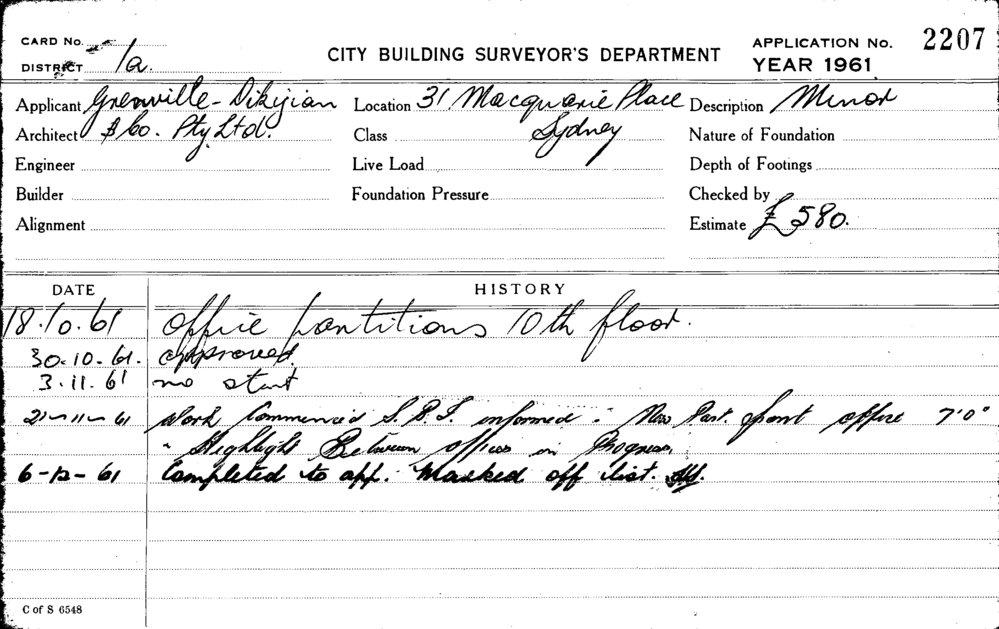 CARD No.
DISTRICT 1a.
CITY BUILDING SURVEYOR'S DEPARTMENT
APPLICATION No. 2207
YEAR 1961
Applicant Grenville-Dikijian Location 31 Macquarie Place Description Minor
Architect & Co. Pty Ltd. Class Sydney Nature of Foundation
Engineer Live Load Depth of Footings
Builder Foundation Pressure Checked by
Alignment Estimate £580.
DATE HISTORY
18.10.61 Office partitions 10th floor.
30.10.61. approved
3.11.61 no start
21-11-61 Work Commenced S.B.I. informed. New Part. front office 7'0"
Highlight Between offices in Progress
6-12-61 Completed to app. Marked off list.
C of S 6548